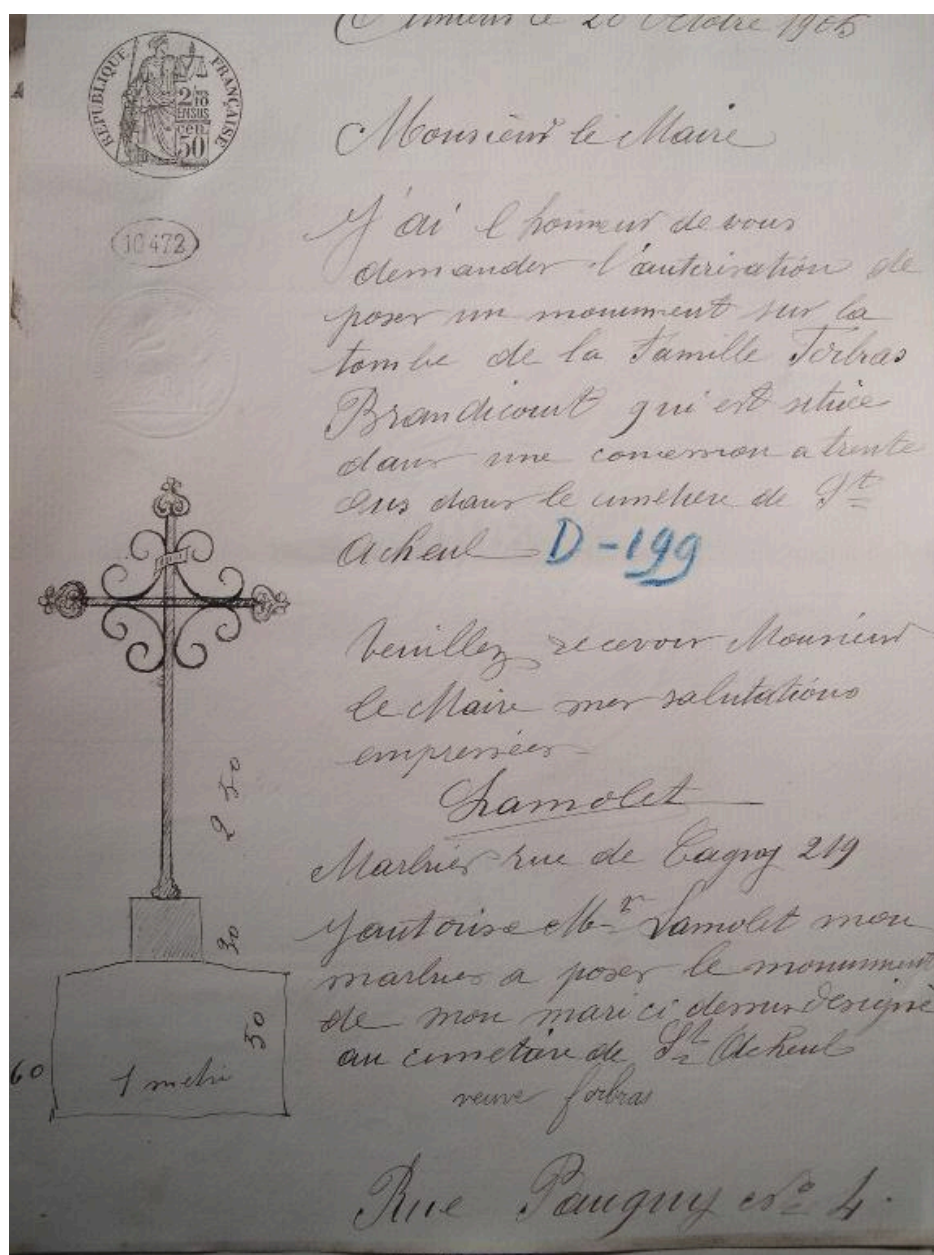 Amiens le 20 Octobre 1905
REPUBLIQUE FRANÇAISE
2/10 EN SUS
cen. 50
Monsieur le Maire
10472
J'ai l honneur de vous
demander l'autorisation de
poser un monument sur la
tombe de la famille Forbras
Brandicourt qui est située
dans une concession a trente
ans dans le cimetiere de St
Acheul D-199
Veuillez recevoir Monsieur
le Maire mes salutations
empressées
Lamolet
2 50
Marbrier rue de Cagny 219
J'autorise Mr Lamolet mon
30
marbrier a poser le monument
de mon mari ci dessus designé
50
au cimetaire de St Acheul
60
1 metre
veuve forbras
Rue No 4.